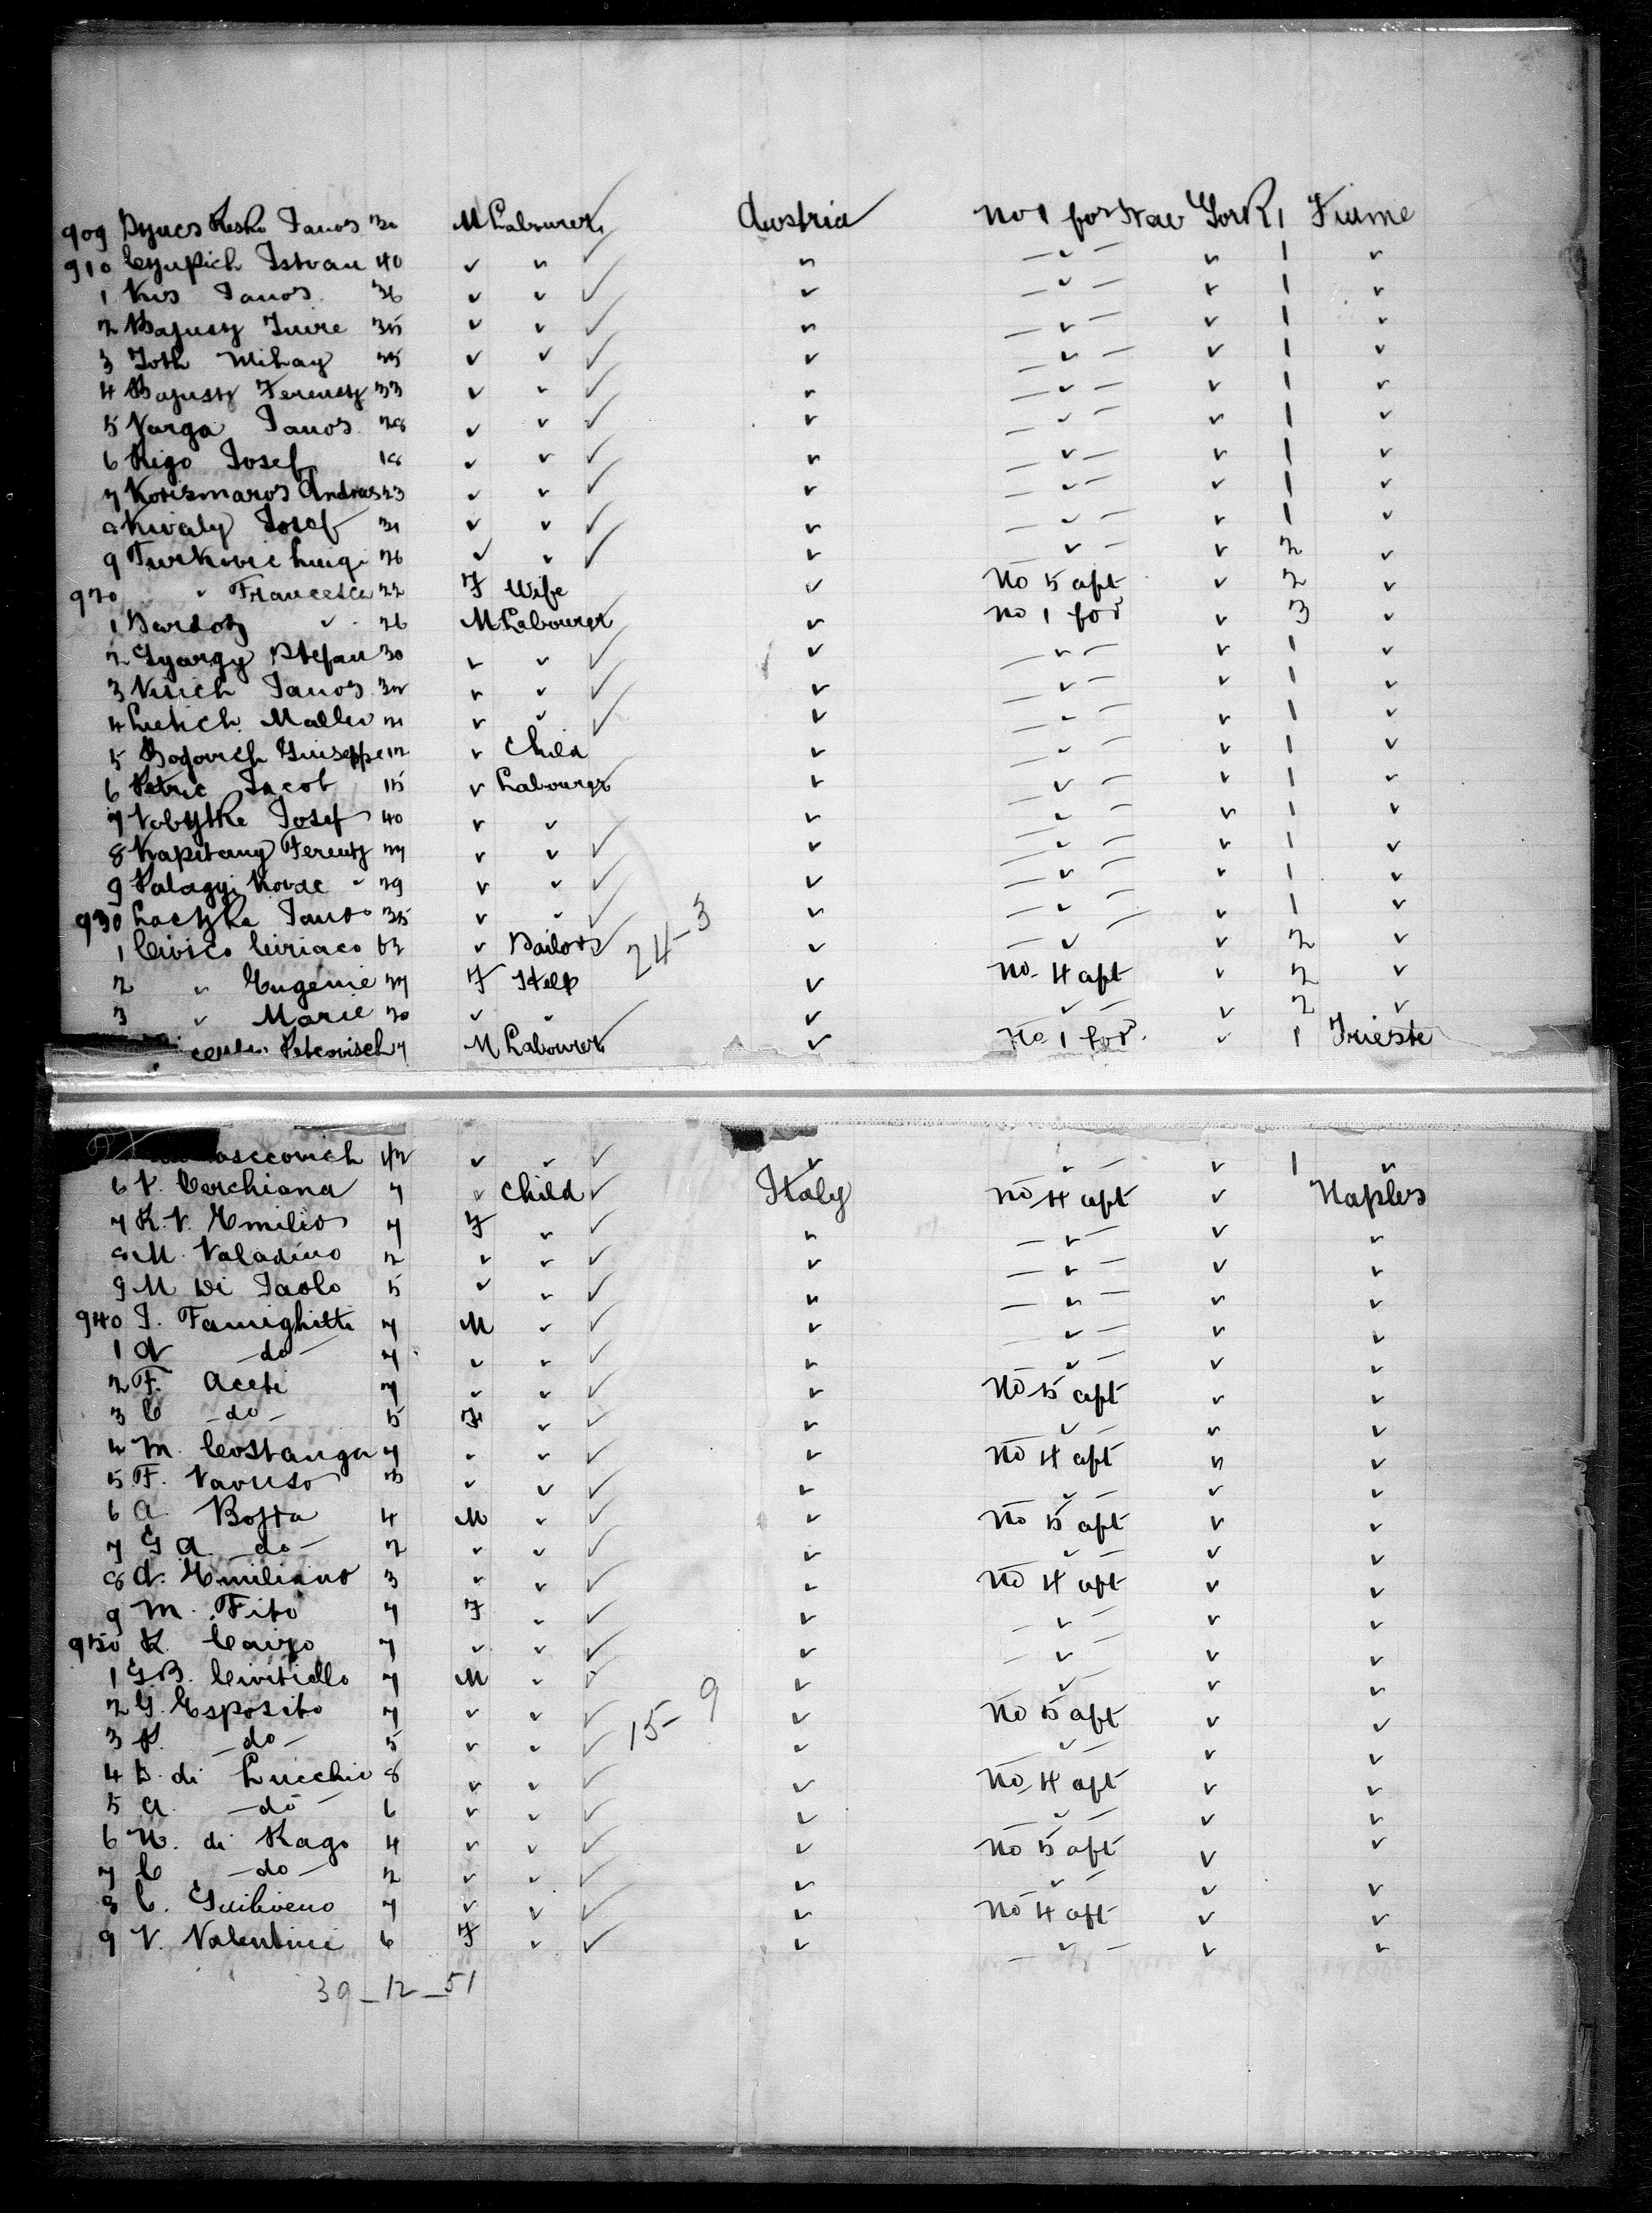 909 Janos 30 M Labourer Austria No 1 for New York 1 Fiume
910 Istvan 40 " " " — " — " 1 "
1 Kis Janos 36 " " " — " — " 1 "
2 Bajusz Imre 35 " " " — " — " 1 "
3 Toth Mihay 25 " " " — " — " 1 "
4 Bajusz Ferensz 33 " " " — " — " 1 "
5 Varga Janos 28 " " " — " — " 1 "
6 Rigo Josef 18 " " " — " — " 1 "
7 Korismaros Andras 23 " " " — " — " 1 "
8 Kivaly Josef 31 " " " — " — " 1 "
9 Turkovic Luigi 26 " " " " — " 2 "
920 " Francesca 22 F Wife " No 5 aft " 2 "
1 " 26 M Labourer " No 1 for " 3 "
2 Gyorgy Stefan 30 " " " — " — " 1 "
3 Janos " " " — " — " 1 "
4 " " " — " — " 1 "
5 Bogovich Giuseppe 12 " Child " — " — " 1 "
6 Petric Jacob 15 " Labourer " — " — " 1 "
7 Josef 40 " " " — " — " 1 "
8 Kapitany Ferensz 27 " " " — " — " 1 "
9 Palagyi Kovac " 29 " " " — " — " 1 "
930 Janos 35 " " " — " — " 1 "
1 Civico Ciriaco 63 " Sailor 24-3 " — " " 2 "
2 " Eugenie 27 F Help " No 4 aft " 2 "
3 " Marie 20 " " " " — " 2 "
Petcovisch M Labourer " No 1 for " 1 Trieste
42 " " " " — " 1 "
6 V. Cerchiana 7 " Child Italy No 4 aft " Naples
7 R. V. Emilio 7 F " " — " — " "
8 M. Valadino 2 " " " — " — " "
9 M Di Paolo 5 " " " — " — " "
940 I. Famighitti 7 M " " — " — " "
1 A — do — 7 " " " " — " "
2 F. Aceti 7 " " " No 5 aft " "
3 C — do — 5 F " " " — " "
4 M. Costanga 7 " " " No 4 aft " "
5 F. " " " " — " "
6 A. Botta 4 M " " No 5 aft " "
7 G A. — do — 2 " " " " — " "
8 A. Emiliano 3 " " " No 4 aft " "
9 M. Fito 7 F " " — " — " "
950 R. 7 " " " — " — " "
1 G.B. Civitiello 7 M " " " — " "
2 G. Esposito 7 " " 15-9 " No 5 aft " "
3 P. — do — 5 " " " " — " "
4 D. di Lucchio 8 " " " No 4 aft " "
5 A. — do — 6 " " " " — " "
6 N. di Rago 4 " " " No 5 aft " "
7 C — do — 2 " " " " — " "
8 C. 7 " " " No 4 aft " "
9 V. Valentini 6 F " " — " — " "
39_12_51